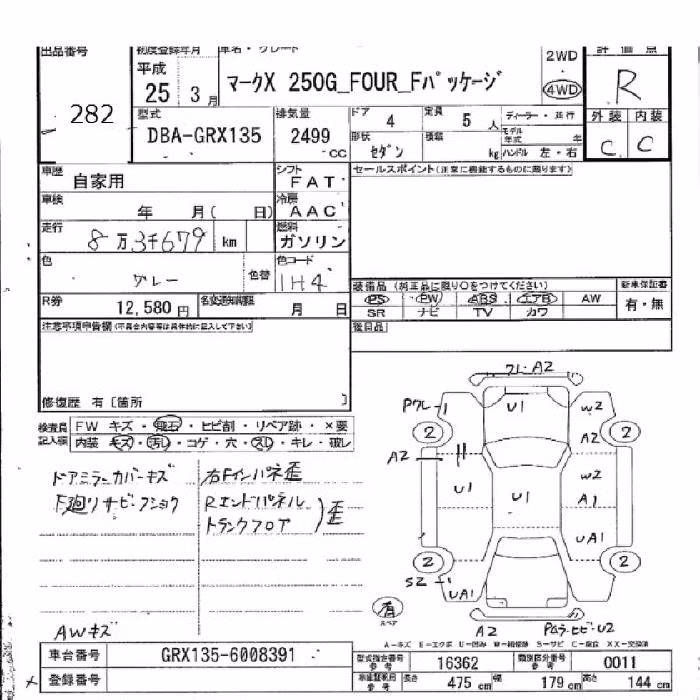 出品番号 初度登録年月 車名・グレード 2WD 評価点
282 平成 25 3月 マークX 250G_FOUR_Fパッケージ 4WD R
型式 DBA-GRX135 排気量 2499 CC
ドア 4 定員 5 人 ディーラー・並行 外装 内装
形状 セダン 積載 kg モデル年式 年 ハンドル 左・右 C C
車歴 自家用 シフト FAT セールスポイント(正常に機能するものに限ります)
車検 年 月( 日) 冷房 AAC
走行 8万3千679 km 燃料 ガソリン
色 グレー 色替 色コード 1H4
装備品 (純正品に限り○をつけてください) 新車保証書
R券 12,580円 名変通知期限 月 日 PS PW ABS エアB AW 有・無
SR ナビ TV カワ
注意事項申告欄(不具合内容等は具体的に記入して下さい) 後日品
修復歴 有〔箇所 〕
検査員記入欄 FW キズ・飛石・ヒビ割・リペア跡・×要
内装 キズ・汚レ・コゲ・穴・スレ・キレ・破レ
ドアミラーカバーキズ 右Fインパネ歪
F廻りサビ・フショク Rエンドパネル
トランクフロア 歪
AWキズ
クレ A2
Pクレ-1 U1 W2
2 A2 2
A2 W2
U1 U1 A1
UA1
2 2
S2 UA1
有 スペア
A2
A-キズ E-エクボ U-凹み W-補修跡 S-サビ C-腐蝕 XX-交換済
車台番号 GRX135-6008391 型式指定番号 参考 16362 類別区分番号 参考 0011
登録番号 参考 長さ 475 cm 幅 179 cm 高さ 144 cm